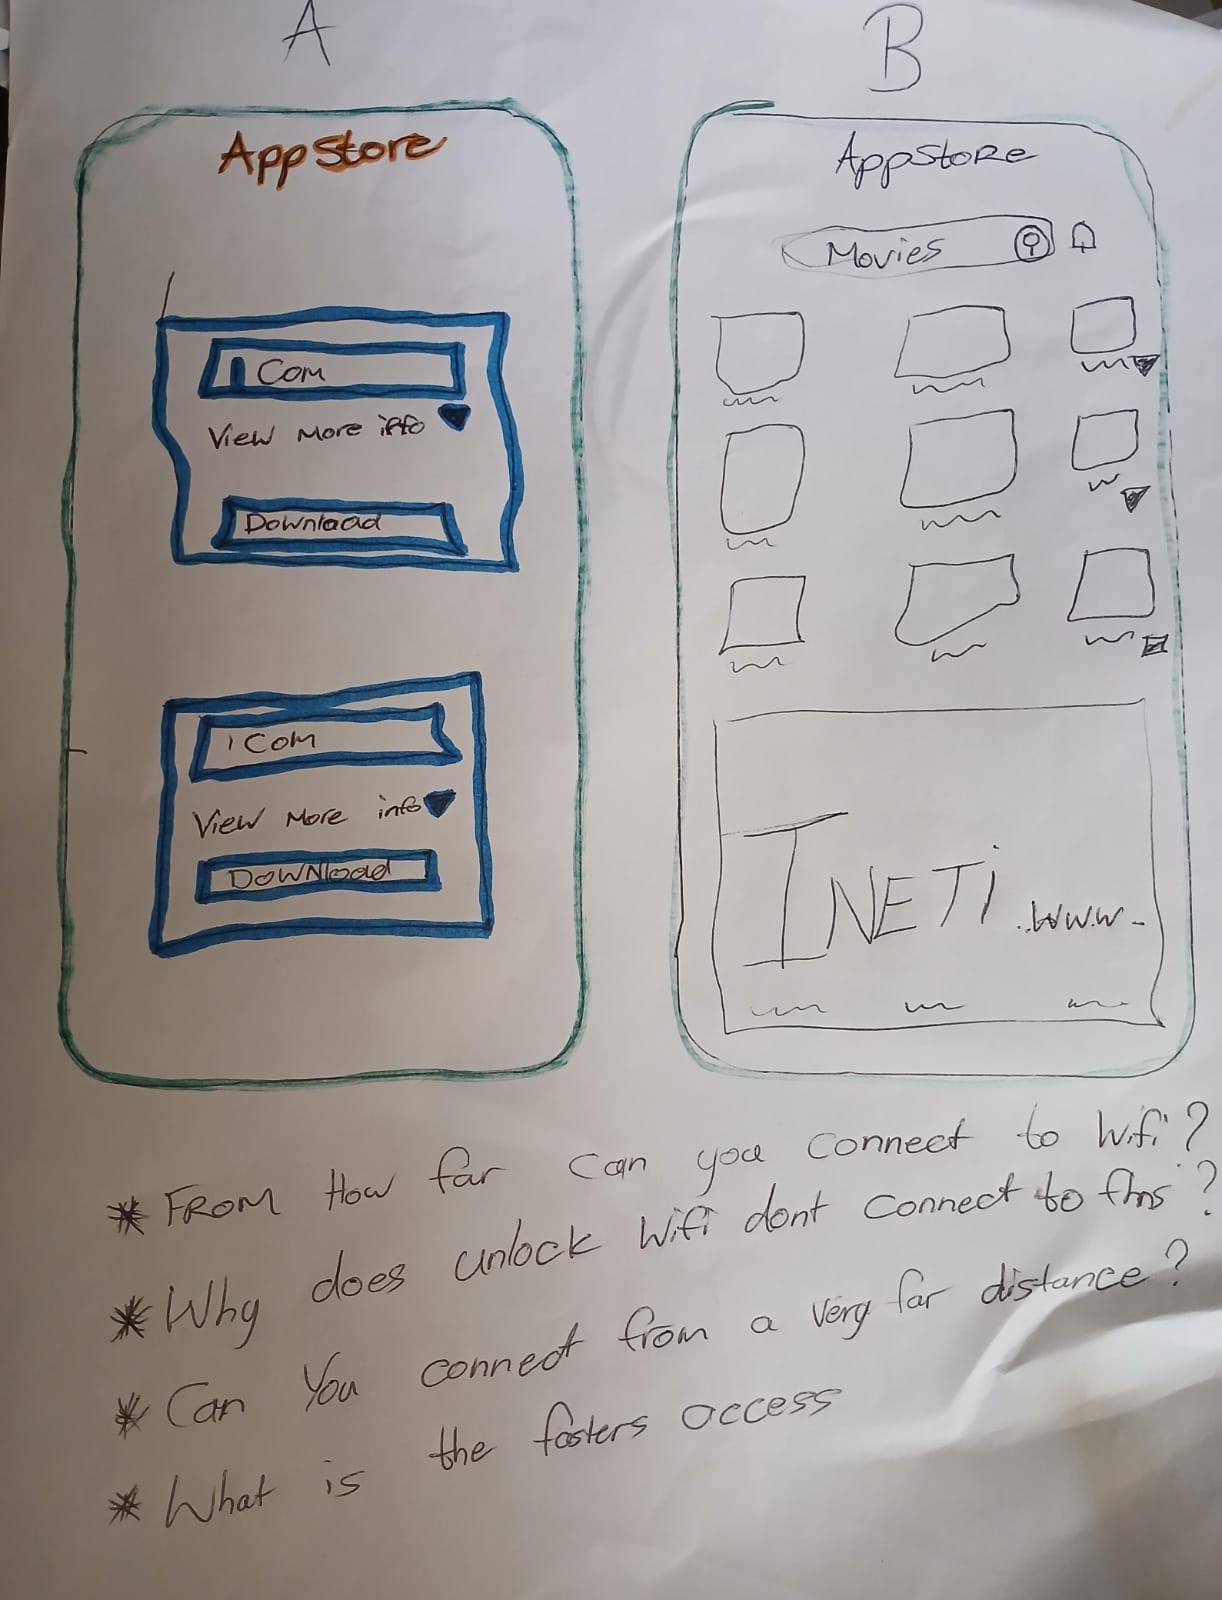 A
B
AppStore
I Com
View More info
Download
i Com
View More info
DOWNload
AppStoRe
Movies
INETi ..www-
* FROM How far can you connect to Wifi?
* Why does unlock Wifi dont connect to fhns?
* Can You connect from a very far distance?
* What is the fasters access